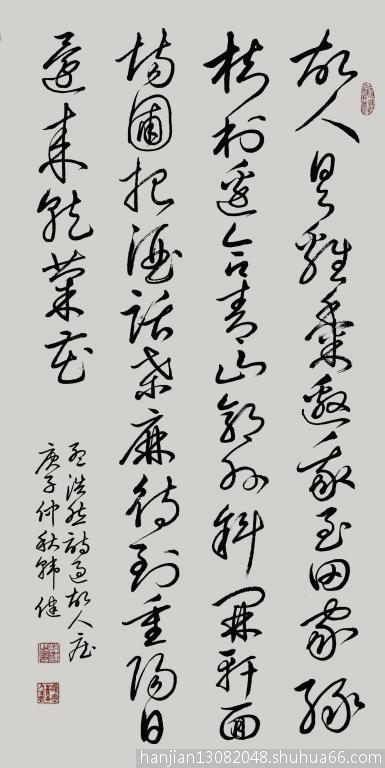 故人具雞黍邀我至田家綠
樹村邊合青山郭外斜開軒面
場圃把酒話桑麻待到重陽日
還來就菊花
孟浩然詩過故人莊
庚子仲秋韓健
hanjian13082048.shuhua66.com